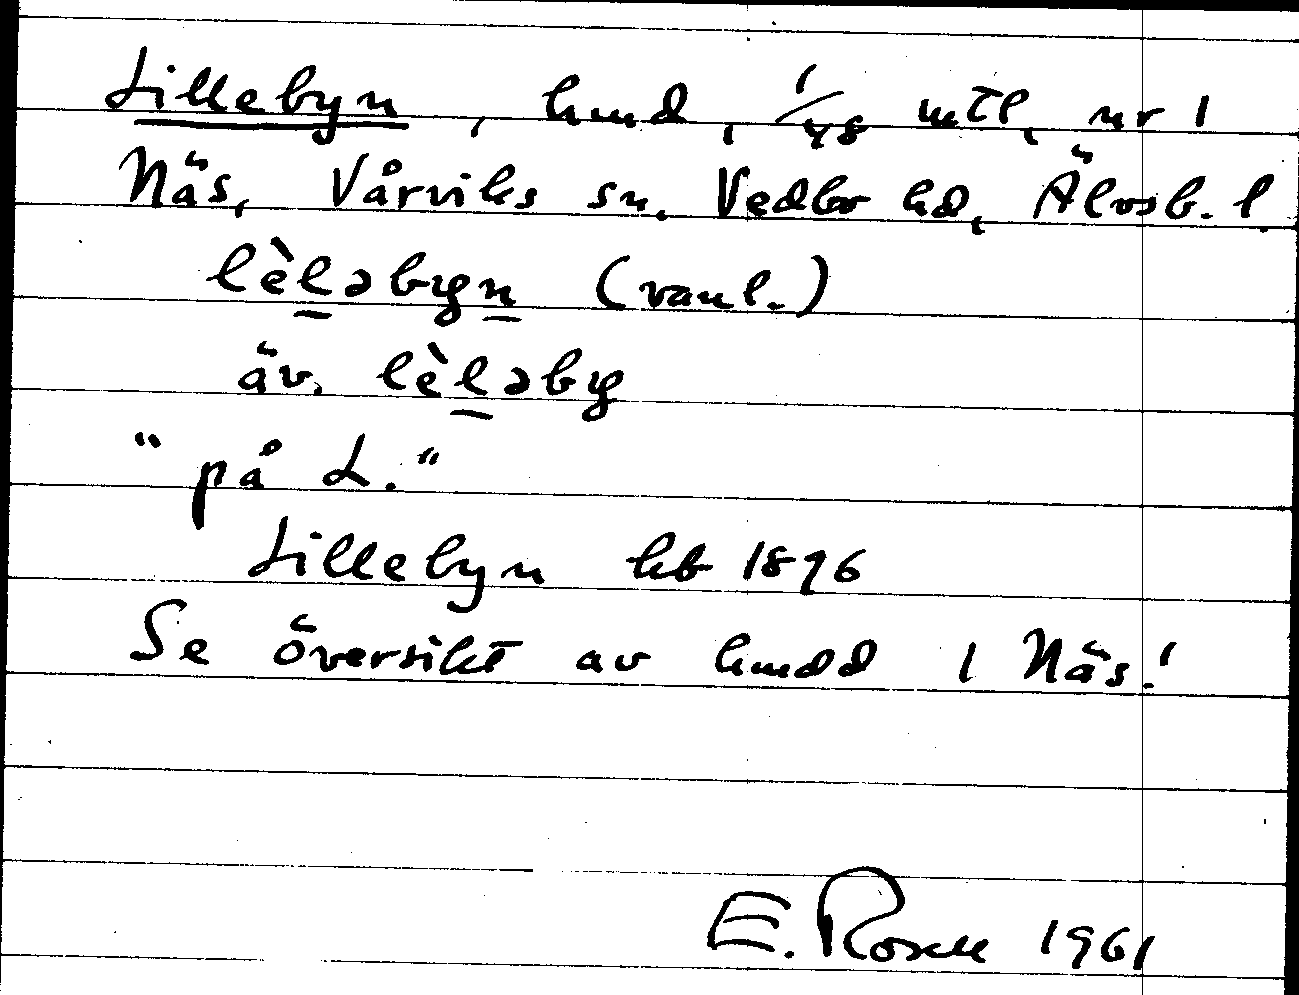 Lillebyn, hmd, 1/48 mtl, nr 1
Näs, Vårviks sn. Vedbo hd, Älvsb. l.
lèl̲əbyn̲ (vanl.)
äv. lèl̲əby
"på L."
Lillebyn kb 1896
Se översikt av hmdd 1 Näs!
E. Rosell 1961